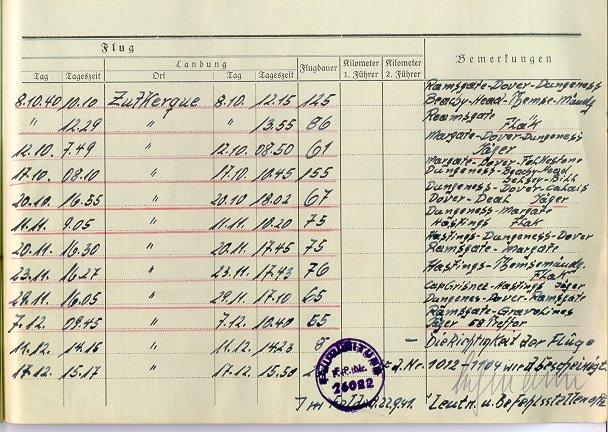 Flug
Landung
Flugdauer
Kilometer 1. Führer
Kilometer 2. Führer
Bemerkungen
Tag Tageszeit Ort Tag Tageszeit
Ramsgate-Dover-Dungeness
8.10.40 10.10 Zutkerque 8.10. 12.15 125 Beachy-Head-Themse-Mündg.
" 12.29 " " 13.55 86 Ramsgate
Flak
Margate-Dover-Dungeness
12.10. 7.49 " 12.10. 08.50 61 Jäger
Margate-Dover-Folkestone
17.10. 08.10 " 17.10. 10.45 155 Dungeness-Beachy-Head
Selsey-Bill
Dungeness-Dover-Calais
20.10. 16.55 " 20.10 18.02 67 Dover-Deal Jäger
Dungeness-Margate
11.11. 9.05 " 11.11. 10.20 75 Hastings Flak
Hastings-Dungeness-Dover
20.11. 16.30 " 20.11. 17.45 75 Ramsgate-Margate
23.11. 16.27 " 23.11. 17.43 76 Hastings-Themsemündg.
Flak
Cap Grisnez-Hastings Jäger
29.11. 16.05 " 29.11. 17.10 65 Dungenes-Dover-Ramsgate
Ramsgate-Gravelines
7.12. 09.45 " 7.12. 10.40 55 Jäger 58 Treffer
11.12. 14.15 " 11.12. 14.23 8 - Die Richtigkeit der Flüge
17.12. 15.17 " 17.12. 15.50 d. Nr. 1012-1104 wird bescheinigt.
Im Felde, d. 22.9.41. Leutn. u. Befehlsstellenoffz.